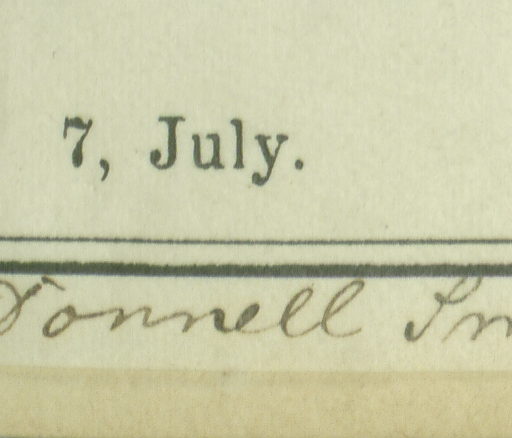 7, July.
Donnell Sm